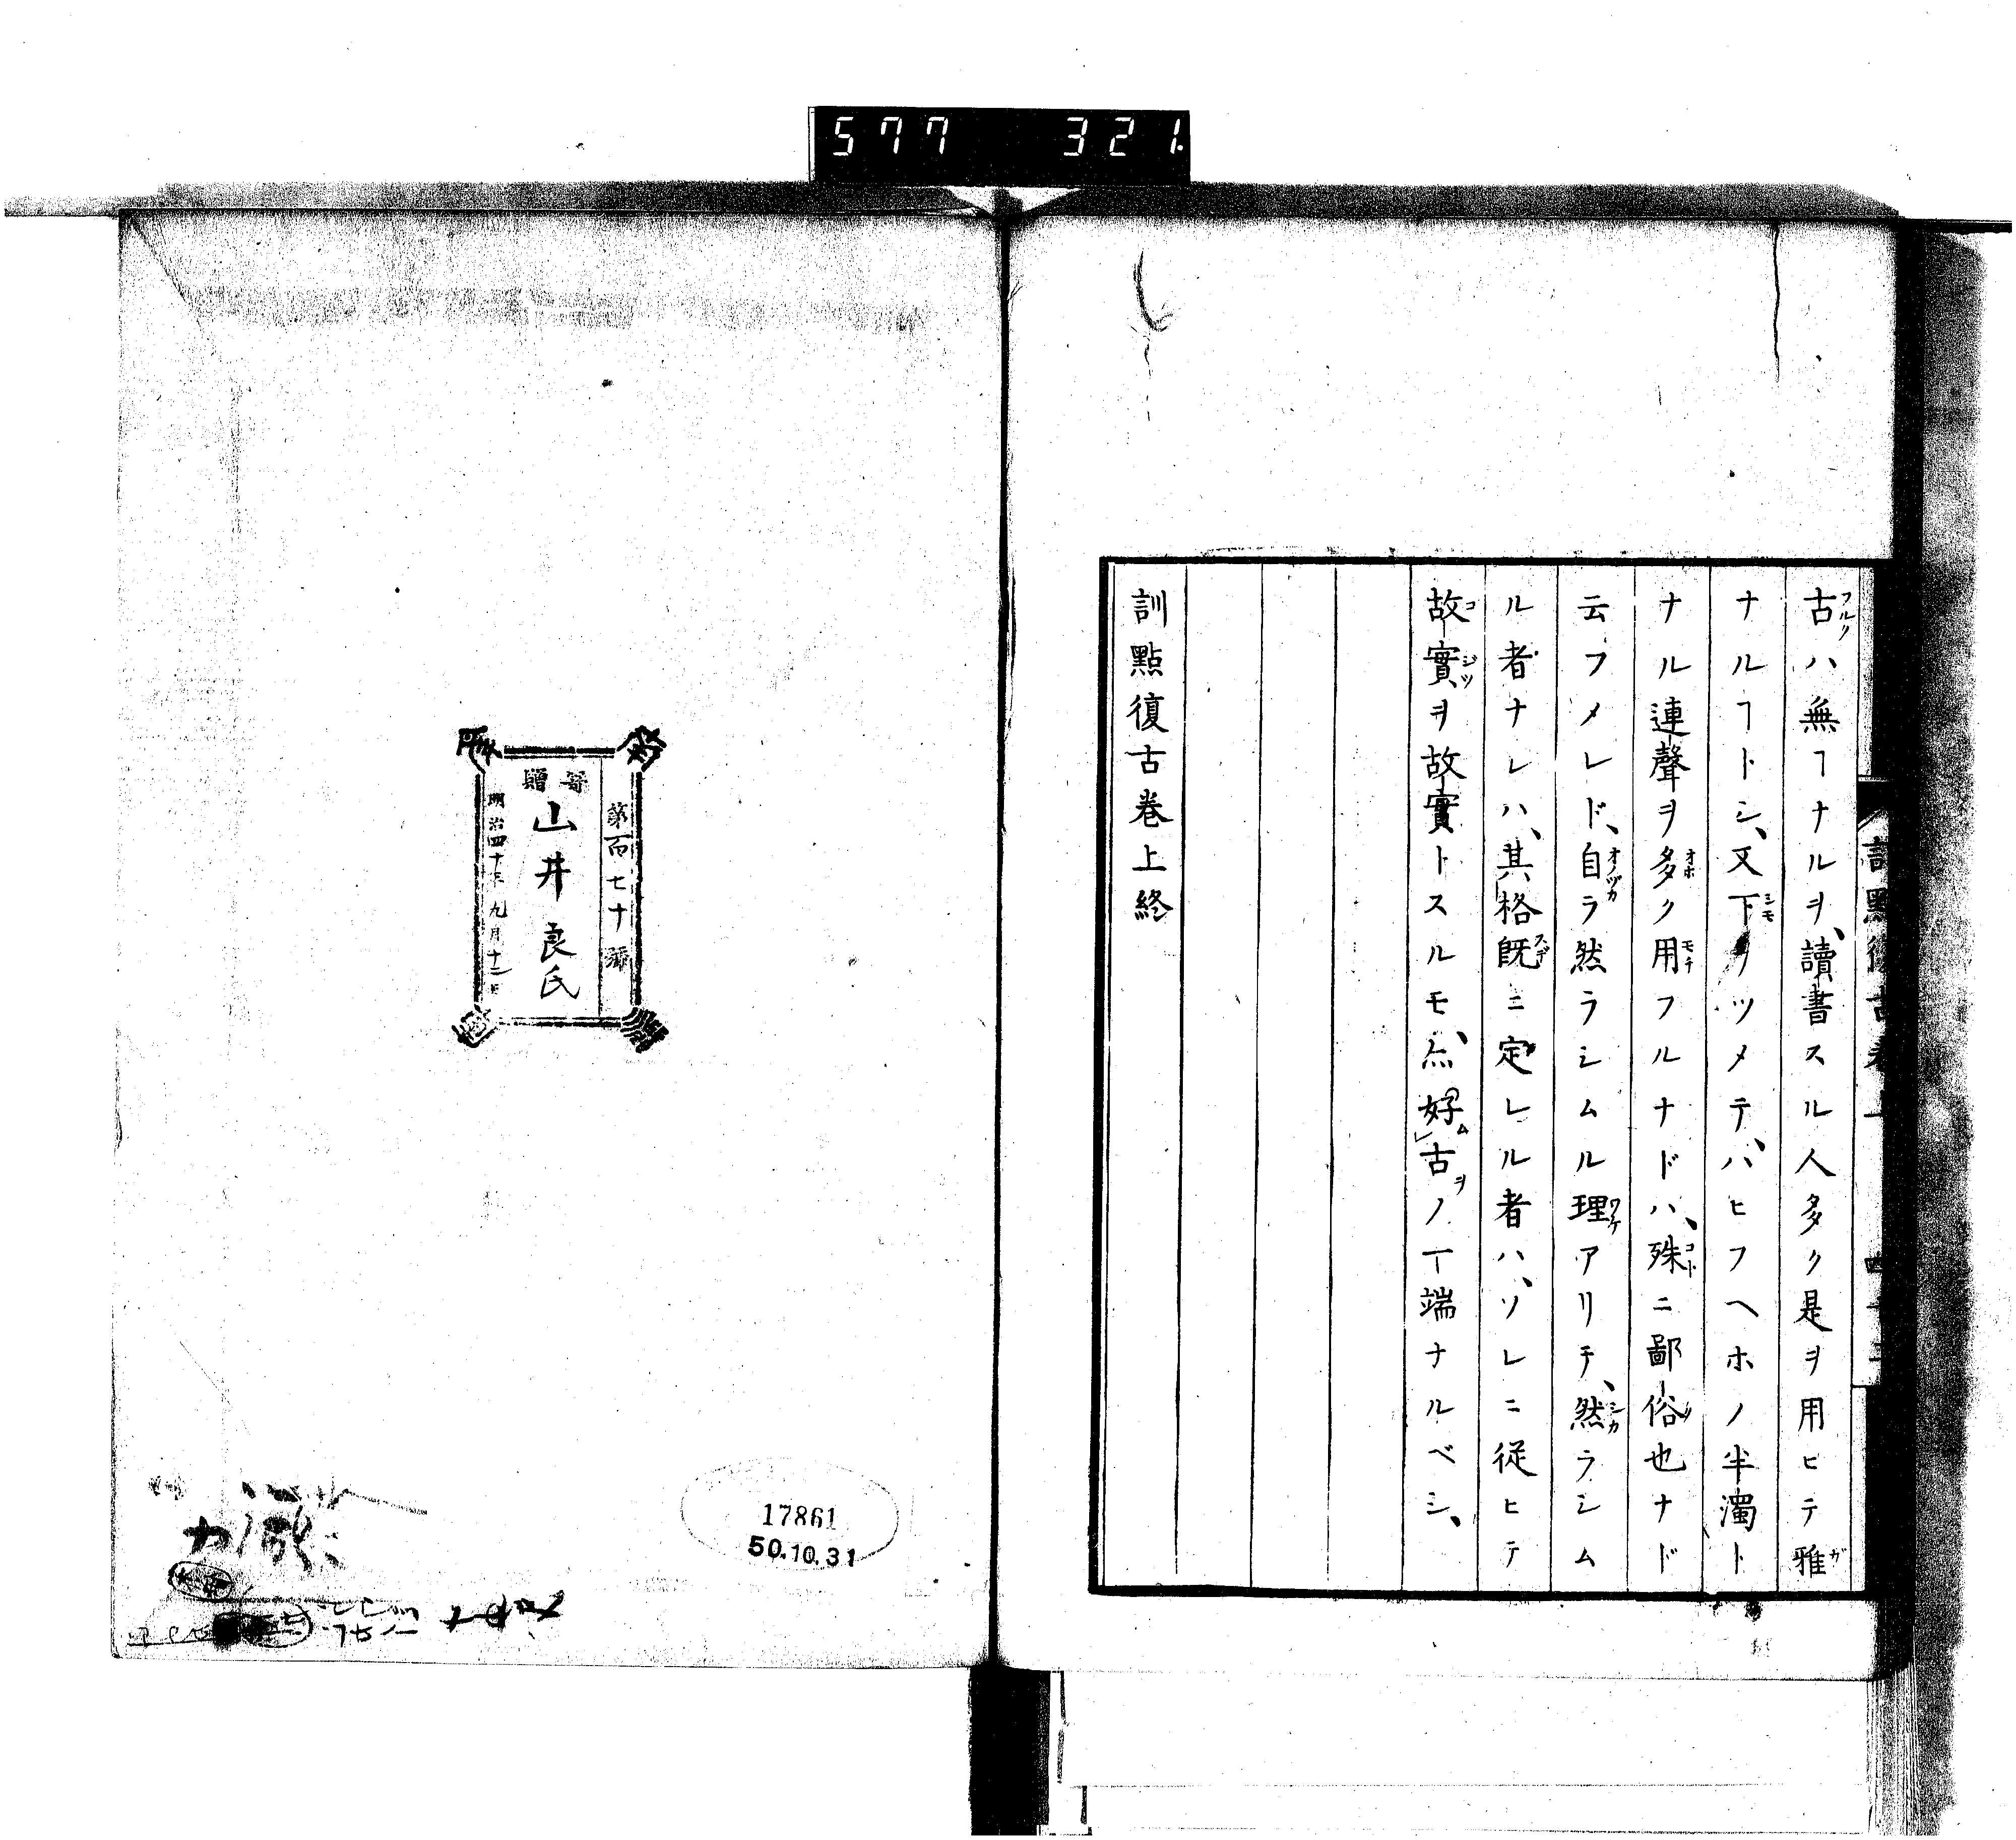 577 321
古ハ無ヿナルヲ、讀書スル人多ク是ヲ用ヒテ雅
ナルヿトシ、又下ヲツメテ、ハヒフヘホノ半濁ト
ナル連聲ヲ多ク用フルナドハ、殊ニ鄙俗也ナド
云フメレド、自ラ然ラシムル理アリテ、然ラシム
ル者ナレハ、其格既ニ定レル者ハ、ソレニ従ヒテ
故實ヲ故實トスルモ、亦好古ノ一端ナルベシ、
訓點復古卷上終
第百七十號
寄贈
山井良氏
明治四十年九月十二日
17861
50.10.31